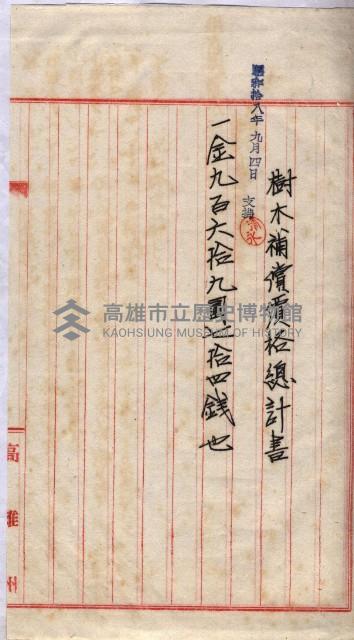 樹木補償價格總計書
昭和拾八年九月四日
支拂
一金九百六拾九圓 拾四錢也
高雄州
高雄市立歷史博物館
KAOHSIUNG MUSEUM OF HISTORY